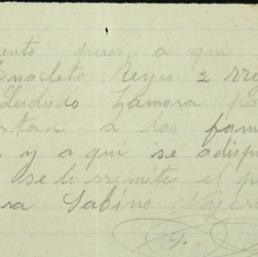 ento pues, a qui
Anacleto Reyes 2 rre
Ladislo Zamora pa
a las fam
y a qui se adisp
se le rremite el p
ra Sabino Najera